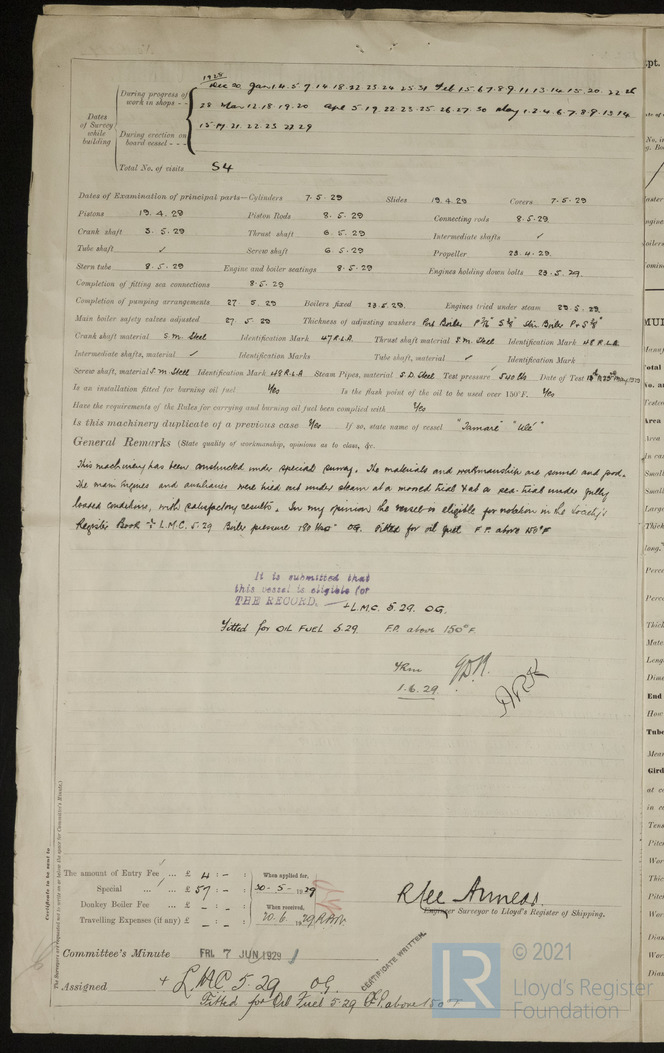 1928
During progress of work in shops - - Dec 20 Jan 1.4.5.9.14.18.22.23.24.25.31 Feb 1.5.6.7.8.9.11.13.14.15.20.22.26
28 Mar 12.18.19.20 Apl 5.19.22.23.25.26.27.30 May 1.2.4.6.7.8.9.13.14
Dates of Survey while building
During erection on board vessel - - - 15.17.21.22.23.27.29
Total No. of visits 54
Dates of Examination of principal parts—Cylinders 7.5.29 Slides 19.4.29 Covers 7.5.29
Pistons 19.4.29 Piston Rods 8.5.29 Connecting rods 8.5.29
Crank shaft 3.5.29 Thrust shaft 6.5.29 Intermediate shafts ✓
Tube shaft ✓ Screw shaft 6.5.29 Propeller 23.4.29
Stern tube 8.5.29 Engine and boiler seatings 8.5.29 Engines holding down bolts 23.5.29
Completion of fitting sea connections 8.5.29
Completion of pumping arrangements 27.5.29 Boilers fixed 23.5.29 Engines tried under steam 29.5.29
Main boiler safety valves adjusted 27.5.29 Thickness of adjusting washers Port Boiler
Crank shaft material S.M. Steel Identification Mark 47 R.L.A. Thrust shaft material S.M. Steel Identification Mark 48 R.L.A.
Intermediate shafts, material ✓ Identification Marks Tube shaft, material ✓ Identification Mark
Screw shaft, material S.M Steel Identification Mark 49 R.L.A Steam Pipes, material S.D. Steel Test pressure 540 lbs Date of Test
Is an installation fitted for burning oil fuel Yes Is the flash point of the oil to be used over 150°F. Yes
Have the requirements of the Rules for carrying and burning oil fuel been complied with Yes
Is this machinery duplicate of a previous case Yes If so, state name of vessel "Tamare" "Ulé"
General Remarks (State quality of workmanship, opinions as to class, &c.
This machinery has been constructed under special survey. The materials and workmanship are sound and good.
The main engines and auxiliaries were tried out under steam at a moored trial & at a sea-trial under fully
loaded conditions, with satisfactory results. In my opinion the vessel is eligible for notation in the Society's
Register Book + L.M.C. 5.29 Boiler pressure 180 lbs OG. Fitted for oil fuel F.P. above 150°F
It is submitted that
this vessel is eligible for
THE RECORD. + L.M.C. 5.29. OG.
Fitted for OIL FUEL 5.29. F.P. above 150°F
1.6.29.
Certificate to be sent to
The amount of Entry Fee ... £ 4 : - : When applied for,
Special ... £ 57 : - : 30.5.1929
Donkey Boiler Fee ... £ - : - : When received,
Travelling Expenses (if any) £ - : - : 20.6.1929
Engineer Surveyor to Lloyd's Register of Shipping.
Committee's Minute FRI. 7 JUN 1929
CERTIFICATE WRITTEN.
Assigned + L.M.C. 5.29 O.G.
Fitted for Oil Fuel 5.29 F.P. above 150°F
LR © 2021
Lloyd's Register
Foundation